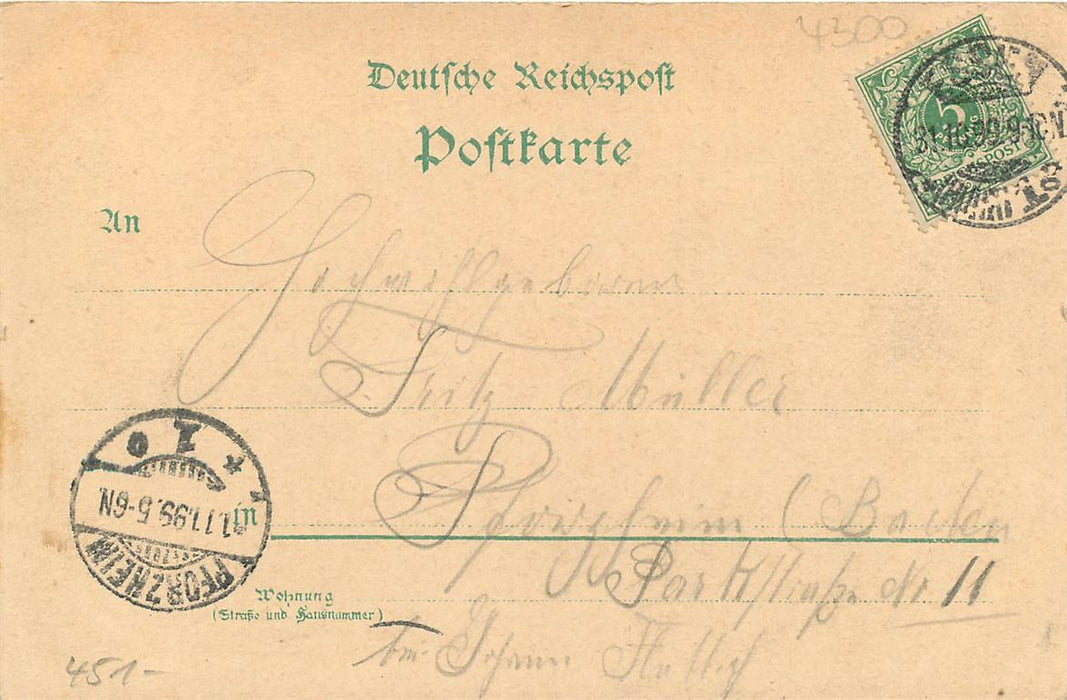 4300
Deutsche Reichspost
Postkarte
5
31.10.99.9-10N.
An
Hochwohlgeboren
Fritz Müller
in Pforzheim (Baden
Parkstraße Nr 11
Wohnung
(Straße und Hausnummer)
bei Johann
1.11.99.5-6N.
PFORZHEIM
451-